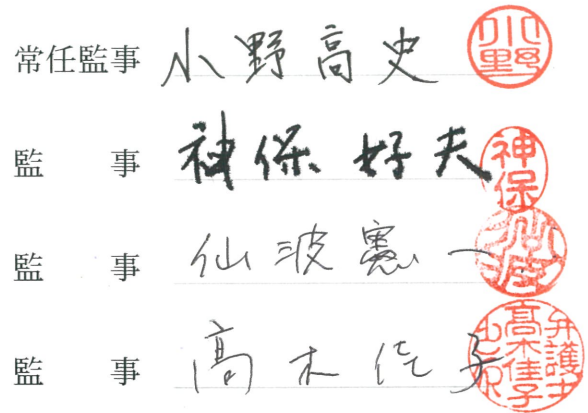 常任監事 小野高史 小野
監事 神保好夫 神保
監事 仙波憲一 仙波
監事 高木佳子 弁護士高木佳子之印